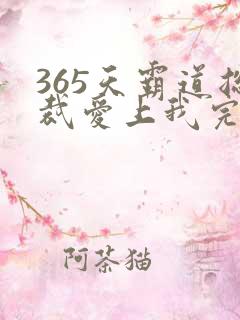 365天霸道总
裁爱上我完
阿茶猫